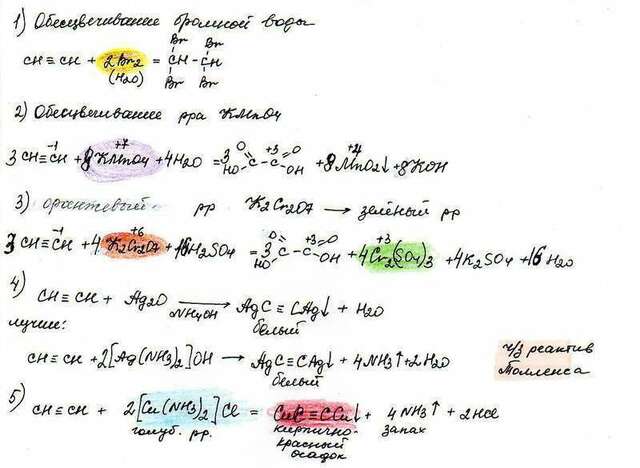 1) Обесцвечивание бромной воды
Br Br
CH≡CH + 2Br2 = CH-CH
(H2O) Br Br
2) Обесцвечивание рра KMnO4
-1 +7 +3 +4
3CH≡CH + 8KMnO4 + 4H2O = 3 O HO C-C O OH + 8MnO2↓ + 8KOH
3) оранжевый рр K2Cr2O7 → зелёный рр
-1 +6 +3 +3
3CH≡CH + 4K2Cr2O7 + 16H2SO4 = 3 O HO C-C O OH + 4Cr2(SO4)3 + 4K2SO4 + 16H2O
4) CH≡CH + Ag2O → AgC≡CAg↓ + H2O
NH4OH белый
лучше:
CH≡CH + 2[Ag(NH3)2]OH → AgC≡CAg↓ + 4NH3↑ + 2H2O
белый
ч/з реактив
Толленса
5) CH≡CH + 2[Cu(NH3)2]Cl = CuC≡CCu↓ + 4NH3↑ + 2HCl
голуб. рр. кирпично- запах
красный
осадок